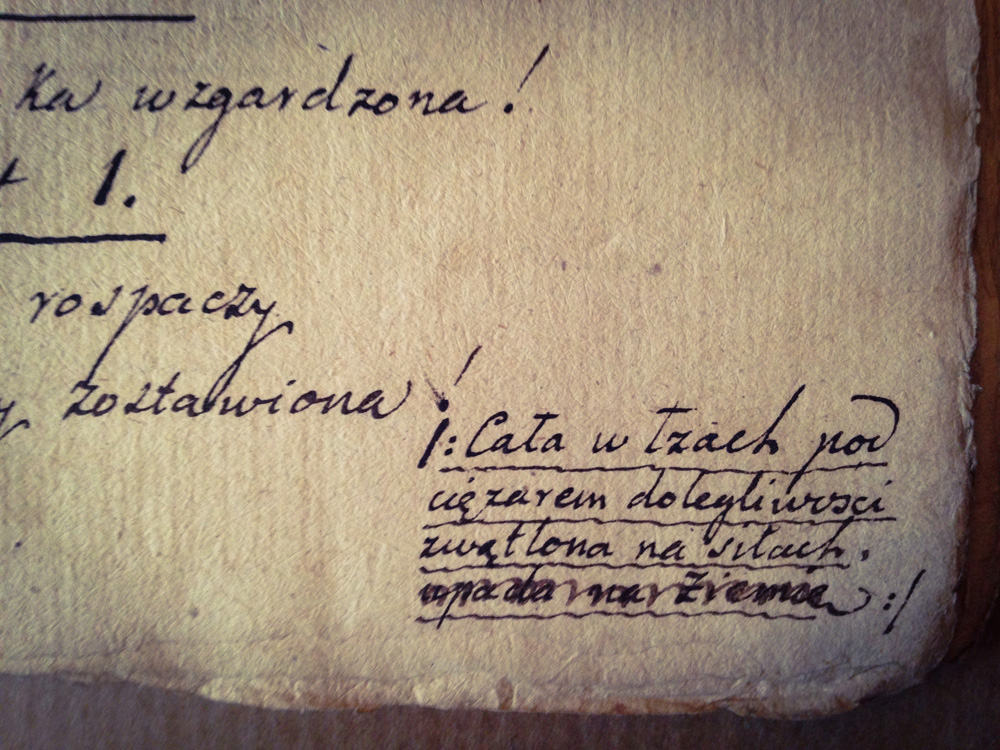 ka wzgardzona!
t 1.
rospaczy
y zostawiona!
/: Cała w łzach pod
ciężarem dolegliwosci
zwątlona na siłach,
upada na Ziemię :/